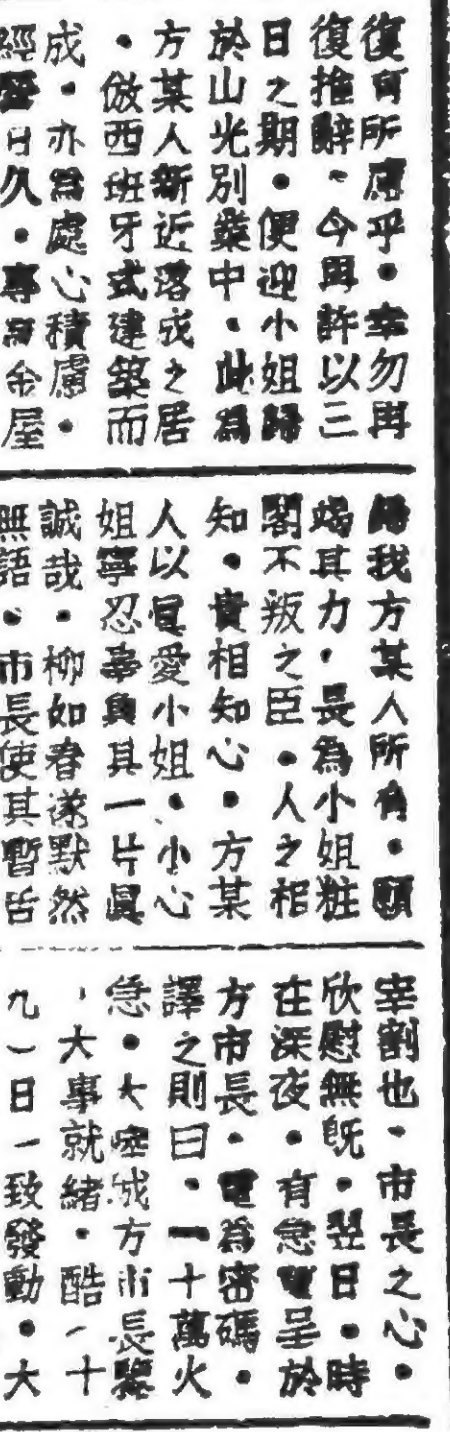 復何所慮乎・幸勿再
復推辭、今再許以三
日之期・便迎小姐歸
於山光別業中・此為
方某人新近落成之居
・倣西班牙式建築而
成・亦為處心積慮・
經營日久・專為金屋
歸我方某人所有・願
竭其力・長為小姐粧
閣不叛之臣・人之相
知・貴相知心・方某
人以冥愛小姐・小心
姐寧忍辜負其一片眞
誠哉・柳如春遂默然
無語・市長使其暫居
宰割也、市長之心・
欣慰無既・翌日・時
在深夜・有急電呈於
方市長・電為密碼・
譯之則曰・一十萬火
急・大埠城方市長鑒
・大事就緒・酷一十
九一日一致發動・大